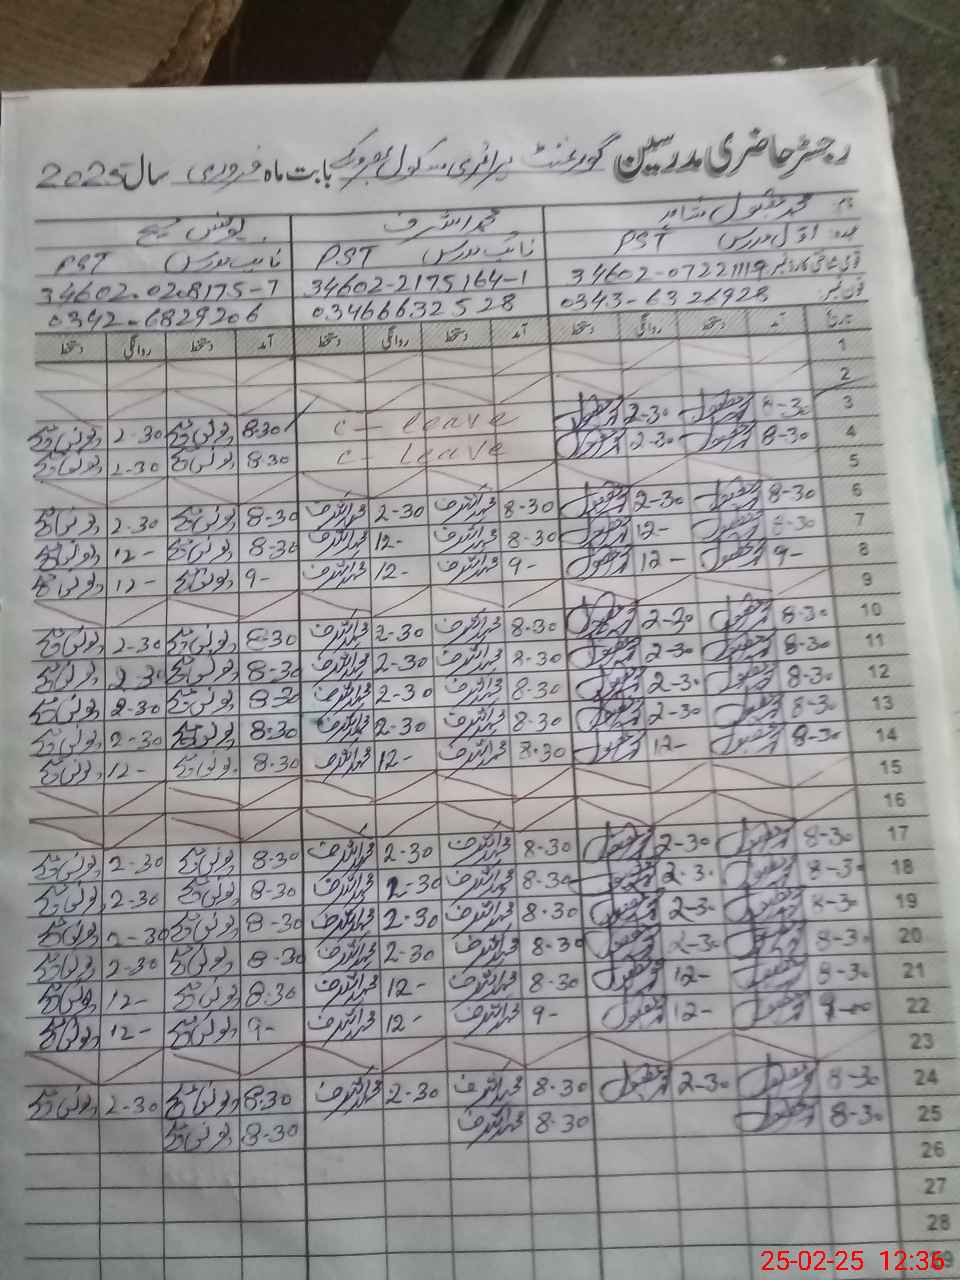 رجسٹر حاضری مدرسین گورنمنٹ پرائمری سکول بابت ماہ فروری سال 2025
نام محمد مقبول شاہد محمد اشرف یونس مسیح
عہدہ اول مدرس PST نائب مدرس P.ST نائب مدرس P.ST
قومی شناختی کارڈ نمبر 34602-07221119 34602-2175164-1 34602-0208175-7
فون نمبر 0343-6326928 03466632528 0342-6829206
تاریخ آمد دستخط روانگی دستخط آمد دستخط روانگی دستخط آمد دستخط روانگی دستخط
1
2
3 8-30 مقبول 2-30 مقبول c - leave 8-30 یونس مسیح 2-30 یونس مسیح
4 8-30 مقبول 2-30 مقبول c - leave 8-30 یونس مسیح 2-30 یونس مسیح
5
6 8-30 مقبول 2-30 مقبول 8-30 محمد اشرف 2-30 محمد اشرف 8-30 یونس مسیح 2-30 یونس مسیح
7 8-30 مقبول 12- مقبول 8-30 محمد اشرف 12- محمد اشرف 8-30 یونس مسیح 12- یونس مسیح
8 9- مقبول 12- مقبول 9- محمد اشرف 12- محمد اشرف 9- یونس مسیح 12- یونس مسیح
9
10 8-30 مقبول 2-30 مقبول 8-30 محمد اشرف 2-30 محمد اشرف 8-30 یونس مسیح 2-30 یونس مسیح
11 8-30 مقبول 2-30 مقبول 8-30 محمد اشرف 2-30 محمد اشرف 8-30 یونس مسیح 2-30 یونس مسیح
12 8-30 مقبول 2-30 مقبول 8-30 محمد اشرف 2-30 محمد اشرف 8-30 یونس مسیح 2-30 یونس مسیح
13 8-30 مقبول 2-30 مقبول 8-30 محمد اشرف 2-30 محمد اشرف 8-30 یونس مسیح 2-30 یونس مسیح
14 8-30 مقبول 12- مقبول 8-30 محمد اشرف 12- محمد اشرف 8-30 یونس مسیح 12- یونس مسیح
15
16
17 8-30 مقبول 2-30 مقبول 8-30 محمد اشرف 2-30 محمد اشرف 8-30 یونس مسیح 2-30 یونس مسیح
18 8-30 مقبول 2-30 مقبول 8-30 محمد اشرف 2-30 محمد اشرف 8-30 یونس مسیح 2-30 یونس مسیح
19 8-30 مقبول 2-30 مقبول 8-30 محمد اشرف 2-30 محمد اشرف 8-30 یونس مسیح 2-30 یونس مسیح
20 8-30 مقبول 2-30 مقبول 8-30 محمد اشرف 2-30 محمد اشرف 8-30 یونس مسیح 2-30 یونس مسیح
21 8-30 مقبول 12- مقبول 8-30 محمد اشرف 12- محمد اشرف 8-30 یونس مسیح 12- یونس مسیح
22 9-00 مقبول 12- مقبول 9- محمد اشرف 12- محمد اشرف 9- یونس مسیح 12- یونس مسیح
23
24 8-30 مقبول 2-30 مقبول 8-30 محمد اشرف 2-30 محمد اشرف 8-30 یونس مسیح 2-30 یونس مسیح
25 8-30 مقبول 8-30 محمد اشرف 8-30 یونس مسیح
26
27
28
29
25-02-25 12:36